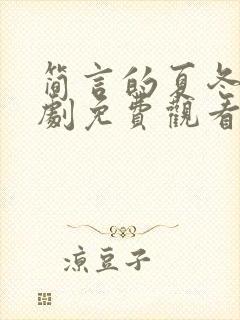 简言的夏冬
劇免費觀看
涼豆子